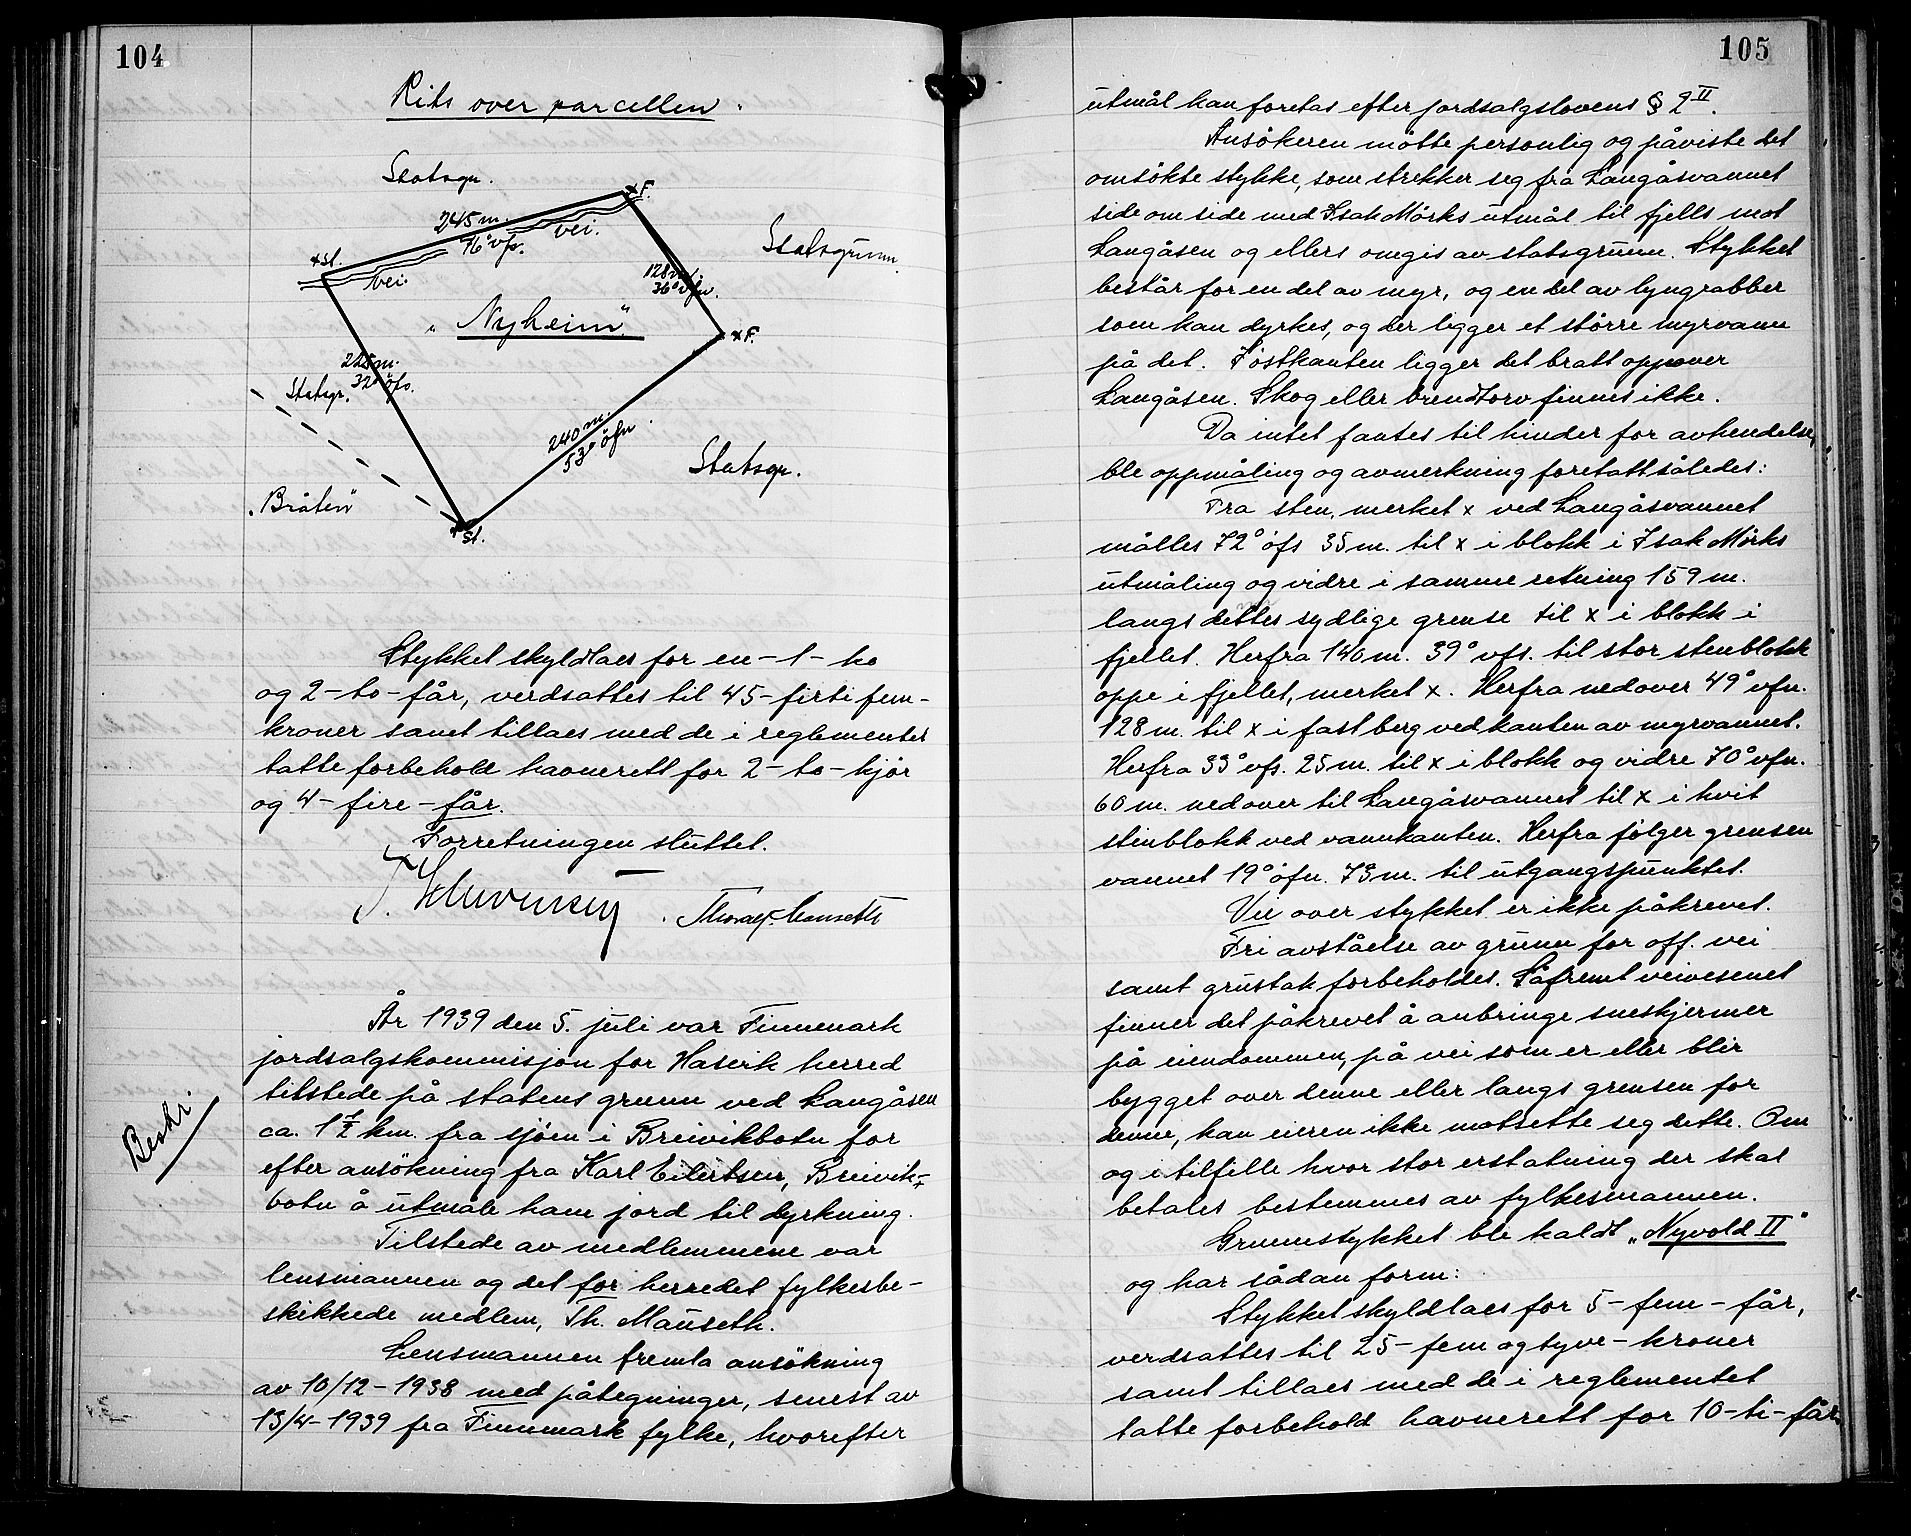 104
Rits over parcellen.
Statsgr.
x F.
245 m.
76° vfs.
vei.
Statsgrunn.
x St.
vei.
128 m.
36° vfn.
„Nyheim"
x F.
225 m.
32° öfs.
Statsgr.
240 m.
53° öfn.
Statsgr.
„Bråten"
x St.
Stykket skyldtaes for en-1-ko
og 2-to-får, verdsattes til 45-firti fem-
kroner samt tillaes med de i reglementet
tatte forbehold havnerett for 2-to-kjör
og 4-fire-får.
Forretningen sluttet.
Th. Mauseth
År 1939 den 5. juli var Finnmark
jordsalgskommisjon for Hasvik herred
tilstede på statens grunn ved Langåsen
ca. 1½ km. fra sjöen i Breivikbotn for
efter ansökning fra Karl Eilertsen, Breivik-
botn å utmåle ham jord til dyrkning.
Beskr.
Tilstede av medlemmene var
lensmannen og det for herredet fylkesbe-
skikkede medlem, Th. Mauseth.
Lensmannen fremla ansökning
av 10/12-1938 med påtegninger, senest av
13/4-1939 fra Finnmark fylke, hvorefter
105
utmål kan foretas efter jordsalgslovens § 2 II.
Ansökeren mötte personlig og påviste det
omsökte stykke, som strekker seg fra Langåsvannet
side om side med Isak Mörks utmål til fjells mot
Langåsen og ellers omgis av statsgrunn. Stykket
består for en del av myr, og en del av lyngrabber
som kan dyrkes, og der ligger et större myrvann
på det. I östkanten ligger det bratt oppover
Langåsen. Skog eller brendtorv finnes ikke.
Da intet fantes til hinder for avhendelse,
ble oppmåling og avmerkning foretatt således:
Fra sten, merket x ved Langåsvannet
måltes 72° öfs 35 m. til x i blokk i Isak Mörks
utmåling og vidre i samme retning 159 m.
langs dettes sydlige grense til x i blokk i
fjellet. Herfra 140 m. 39° vfs. til stor stenblokk
oppe i fjellet, merket x. Herfra nedover 49° vfn.
128 m. til x i fast berg ved kanten av myrvannet.
Herfra 33° vfs. 25 m. til x i blokk og vidre 70° vfn.
60 m. nedover til Langåsvannet til x i hvit
stenblokk ved vannkanten. Herfra fölger grensen
vannet 19° öfn. 73 m. til utgangspunktet.
Vei over stykket er ikke påkrevet.
Fri avståelse av grunn for off. vei
samt grustak forbeholdes. Såfremt veivesenet
finner det påkrevet å anbringe sneskjermer
på eiendommen, på vei som er eller blir
bygget over denne eller langs grensen for
denne, kan eieren ikke motsette seg dette. Om
og i tilfelle hvor stor erstatning der skal
betales bestemmes av fylkesmannen.
Grunnstykket ble kaldt „Nyvold II"
og har sådan form:
Stykket skyldtaes for 5-fem-får,
verdsattes til 25-fem og tyve-kroner
samt tillaes med de i reglementet
tatte forbehold havnerett for 10-ti-får.